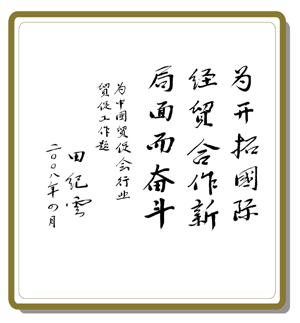 为开拓國际
经贸合作新
局面而奋斗
为中國贸促会行业
贸促工作题
田纪雲
二〇〇八年四月